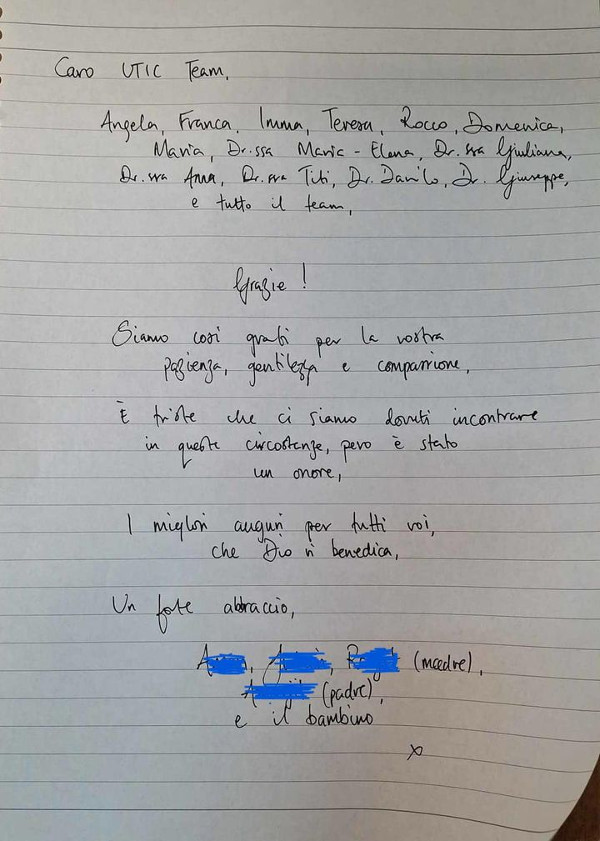 Caro UTIC Team,
Angela, Franca, Imma, Teresa, Rocco, Domenica,
Maria, Dr.ssa Maric-Elena, Dr.ssa Giuliana,
Dr.ssa Anna, Dr.ssa Titi, Dr. Danilo, Dr. Giuseppe,
e tutto il team,
Grazie!
Siamo così grati per la vostra
pazienza, gentilezza e compassione,
È triste che ci siamo dovuti incontrare
in queste circostanze, pero è stato
un onore,
I migliori auguri per tutti voi,
che Dio vi benedica,
Un forte abbraccio,
(madre),
(padre),
e il bambino
x